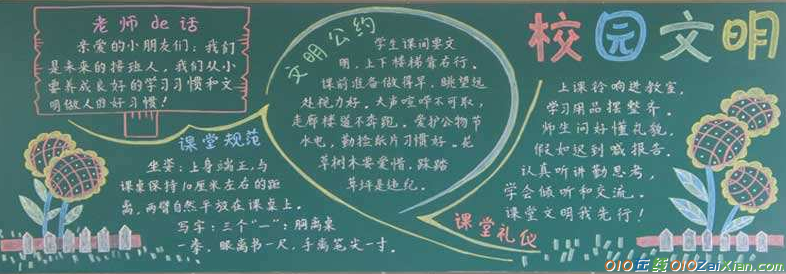 老师de话
亲爱的小朋友们：我们
是未来的接班人，我们从小
要养成良好的学习习惯和文
明做人的好习惯！
课堂规范
坐姿：上身端正，与
课桌保持10厘米左右的距
离，两臂自然平放在课桌上。
写字：三个“一”：胸离桌
一拳，眼离书一尺，手离笔尖一寸。
文明公约
学生课间要文
明，上下楼梯靠右行。
课前准备做得早，眺望远
处视力好。大声喧哗不可取，
走廊楼道不奔跑。爱护公物节
水电，勤捡纸片习惯好。花
草树木要爱惜，踩踏
草坪是违纪。
校园文明
上课铃响进教室，
学习用品摆整齐。
师生问好懂礼貌，
假如迟到喊报告。
认真听讲勤思考，
学会倾听和交流。
课堂文明我先行！
课堂礼仪
010在线010ZaiXian.com